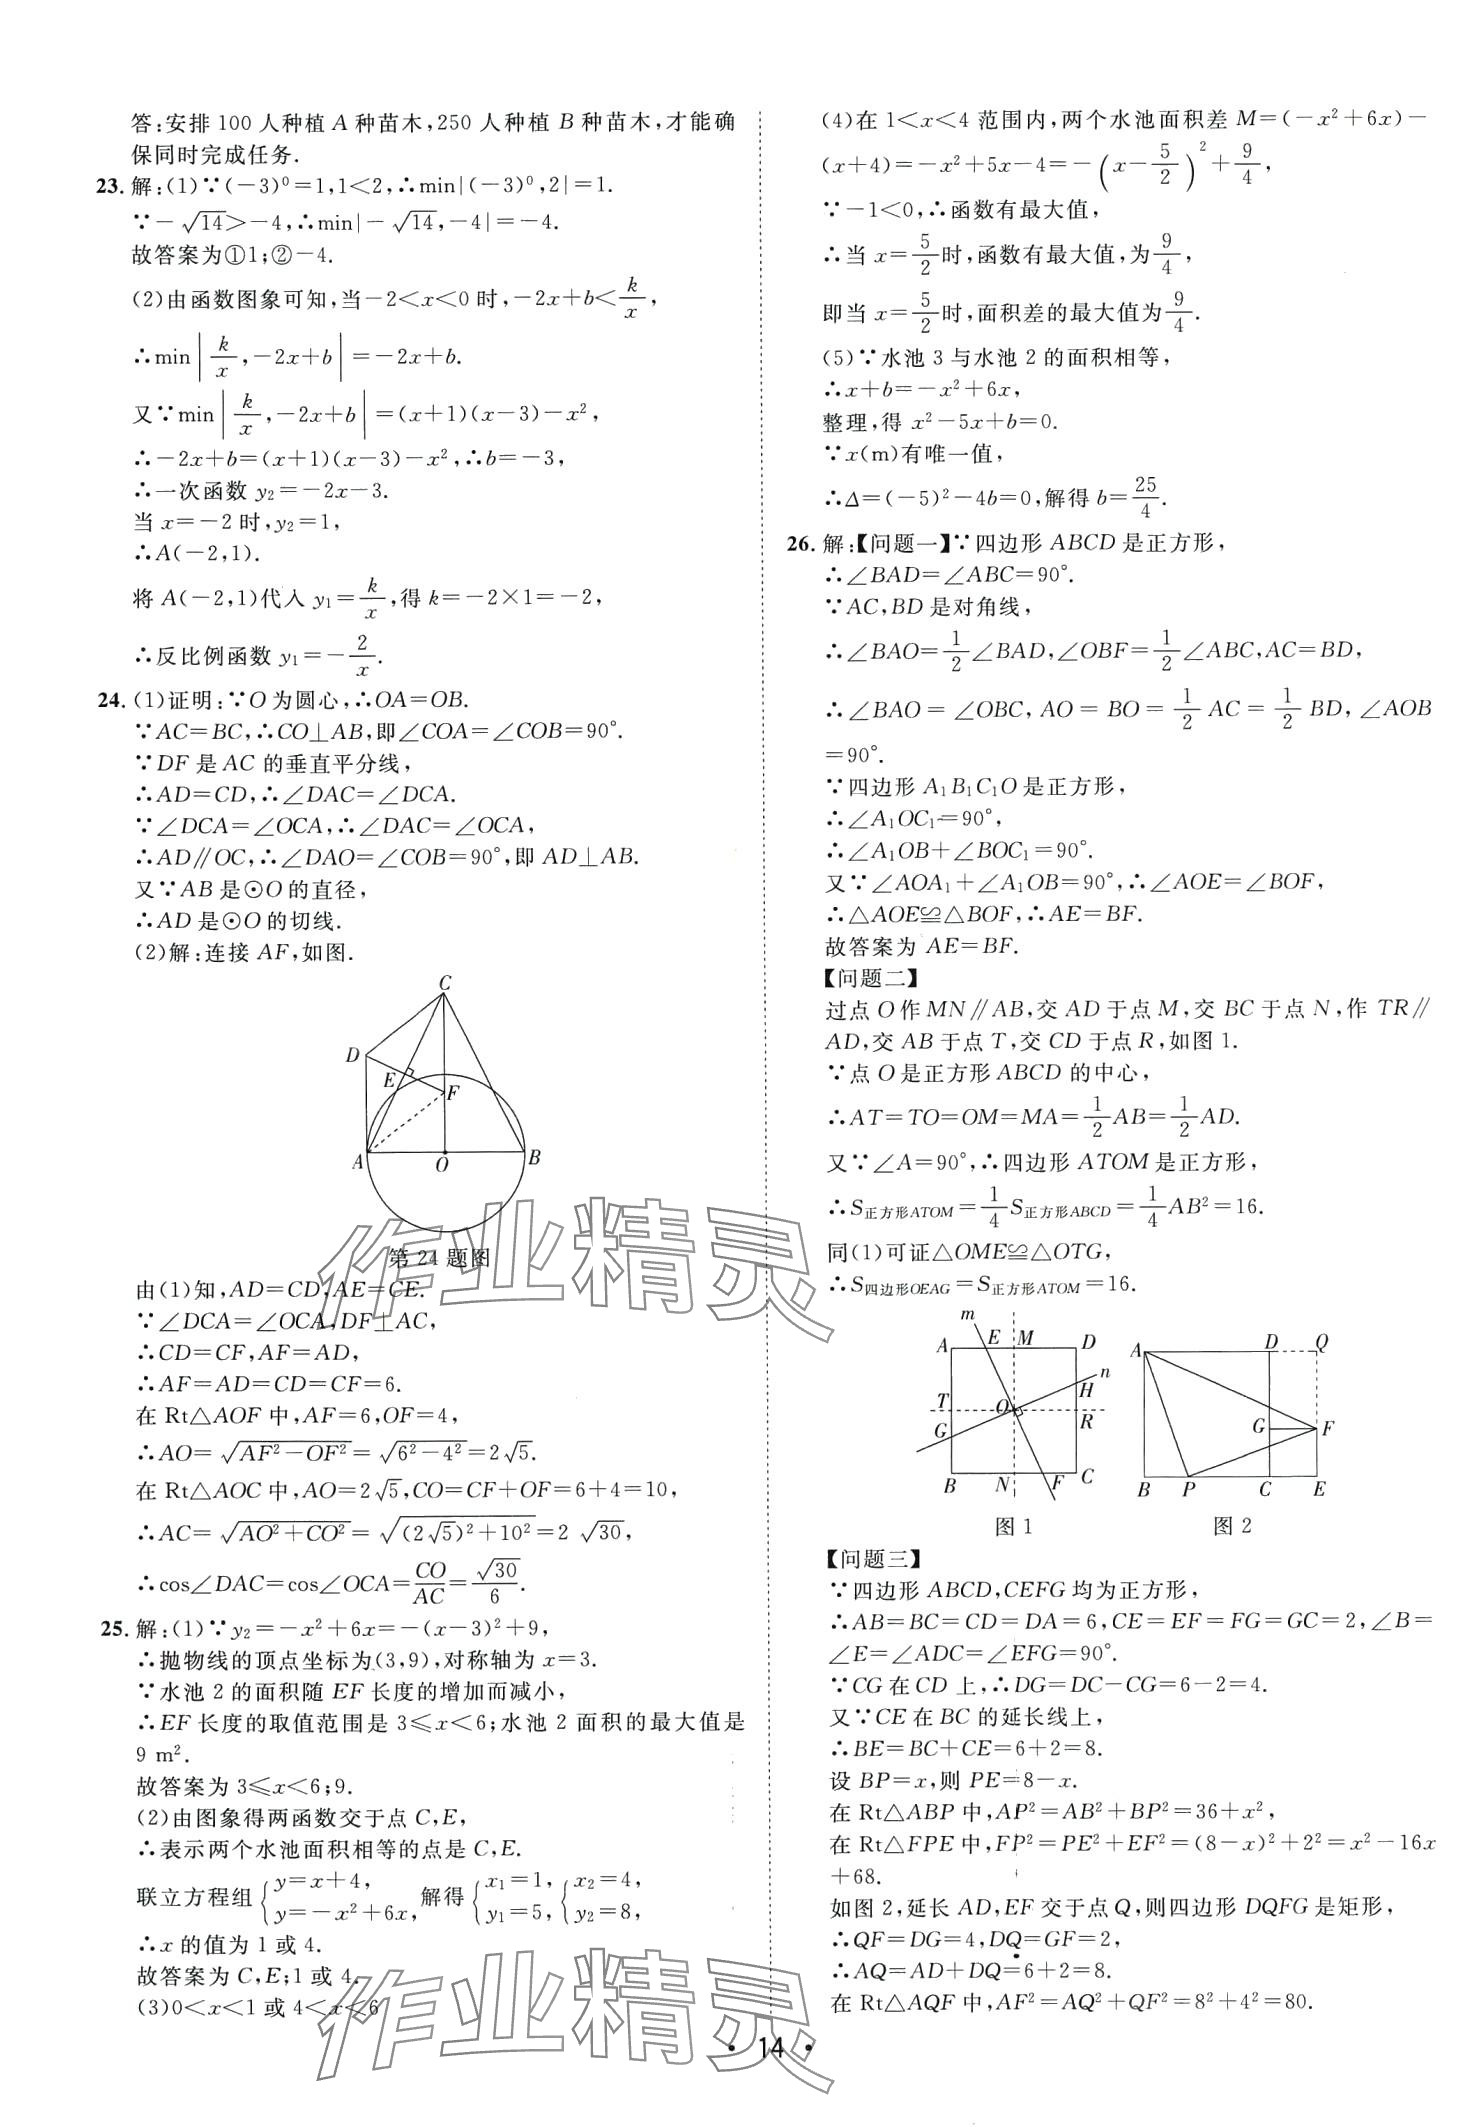 答:安排 100 人种植 A 种苗木,250 人种植 B 种苗木,才能确
保同时完成任务.
23. 解:(1)∵(-3)⁰=1,1<2,∴min|(-3)⁰,2|=1.
∵-√14>-4,∴min|-√14,-4|=-4.
故答案为①1;②-4.
(2)由函数图象可知,当-2<x<0 时,-2x+b<k/x,
∴min|k/x,-2x+b|=-2x+b.
又∵min|k/x,-2x+b|=(x+1)(x-3)-x²,
∴-2x+b=(x+1)(x-3)-x²,∴b=-3,
∴一次函数 y₂=-2x-3.
当 x=-2 时,y₂=1,
∴A(-2,1).
将 A(-2,1)代入 y₁=k/x,得 k=-2×1=-2,
∴反比例函数 y₁=-2/x.
24. (1)证明:∵O 为圆心,∴OA=OB.
∵AC=BC,∴CO⊥AB,即∠COA=∠COB=90°.
∵DF 是 AC 的垂直平分线,
∴AD=CD,∴∠DAC=∠DCA.
∵∠DCA=∠OCA,∴∠DAC=∠OCA,
∴AD∥OC,∴∠DAO=∠COB=90°,即 AD⊥AB.
又∵AB 是⊙O 的直径,
∴AD 是⊙O 的切线.
(2)解:连接 AF,如图.
C
D
E
F
A
O
B
第 24 题图
由(1)知,AD=CD,AE=CE.
∵∠DCA=∠OCA,DF⊥AC,
∴CD=CF,AF=AD,
∴AF=AD=CD=CF=6.
在 Rt△AOF 中,AF=6,OF=4,
∴AO=√(AF²-OF²)=√(6²-4²)=2√5.
在 Rt△AOC 中,AO=2√5,CO=CF+OF=6+4=10,
∴AC=√(AO²+CO²)=√((2√5)²+10²)=2√30,
∴cos∠DAC=cos∠OCA=CO/AC=√30/6.
25. 解:(1)∵y₂=-x²+6x=-(x-3)²+9,
∴抛物线的顶点坐标为(3,9),对称轴为 x=3.
∵水池 2 的面积随 EF 长度的增加而减小,
∴EF 长度的取值范围是 3≤x<6;水池 2 面积的最大值是
9 m².
故答案为 3≤x<6;9.
(2)由图象得两函数交于点 C,E,
∴表示两个水池面积相等的点是 C,E.
联立方程组{y=x+4, y=-x²+6x, 解得{x₁=1, y₁=5, {x₂=4, y₂=8,
∴x 的值为 1 或 4.
故答案为 C,E;1 或 4.
(3)0<x<1 或 4<x<6
(4)在 1<x<4 范围内,两个水池面积差 M=(-x²+6x)-
(x+4)=-x²+5x-4=-(x-5/2)²+9/4,
∵-1<0,∴函数有最大值,
∴当 x=5/2时,函数有最大值,为9/4,
即当 x=5/2时,面积差的最大值为9/4.
(5)∵水池 3 与水池 2 的面积相等,
∴x+b=-x²+6x,
整理,得 x²-5x+b=0.
∵x(m)有唯一值,
∴Δ=(-5)²-4b=0,解得 b=25/4.
26. 解:【问题一】∵四边形 ABCD 是正方形,
∴∠BAD=∠ABC=90°.
∵AC,BD 是对角线,
∴∠BAO=1/2∠BAD,∠OBF=1/2∠ABC,AC=BD,
∴∠BAO=∠OBC,AO=BO=1/2AC=1/2BD,∠AOB
=90°.
∵四边形 A₁B₁C₁O 是正方形,
∴∠A₁OC₁=90°,
∴∠A₁OB+∠BOC₁=90°.
又∵∠AOA₁+∠A₁OB=90°,∴∠AOE=∠BOF,
∴△AOE≌△BOF,∴AE=BF.
故答案为 AE=BF.
【问题二】
过点 O 作 MN∥AB,交 AD 于点 M,交 BC 于点 N,作 TR∥
AD,交 AB 于点 T,交 CD 于点 R,如图 1.
∵点 O 是正方形 ABCD 的中心,
∴AT=TO=OM=MA=1/2AB=1/2AD.
又∵∠A=90°,∴四边形 ATOM 是正方形,
∴S正方形ATOM=1/4S正方形ABCD=1/4AB²=16.
同(1)可证△OME≌△OTG,
∴S四边形OEAG=S正方形ATOM=16.
m
A E M D
n
H
T O R
G
B N F C
图 1
A D Q
G F
B P C E
图 2
【问题三】
∵四边形 ABCD,CEFG 均为正方形,
∴AB=BC=CD=DA=6,CE=EF=FG=GC=2,∠B=
∠E=∠ADC=∠EFG=90°.
∵CG 在 CD 上,∴DG=DC-CG=6-2=4.
又∵CE 在 BC 的延长线上,
∴BE=BC+CE=6+2=8.
设 BP=x,则 PE=8-x.
在 Rt△ABP 中,AP²=AB²+BP²=36+x²,
在 Rt△FPE 中,FP²=PE²+EF²=(8-x)²+2²=x²-16x
+68.
如图 2,延长 AD,EF 交于点 Q,则四边形 DQFG 是矩形,
∴QF=DG=4,DQ=GF=2,
∴AQ=AD+DQ=6+2=8.
在 Rt△AQF 中,AF²=AQ²+QF²=8²+4²=80.
作业精灵
作业精灵
· 14 ·